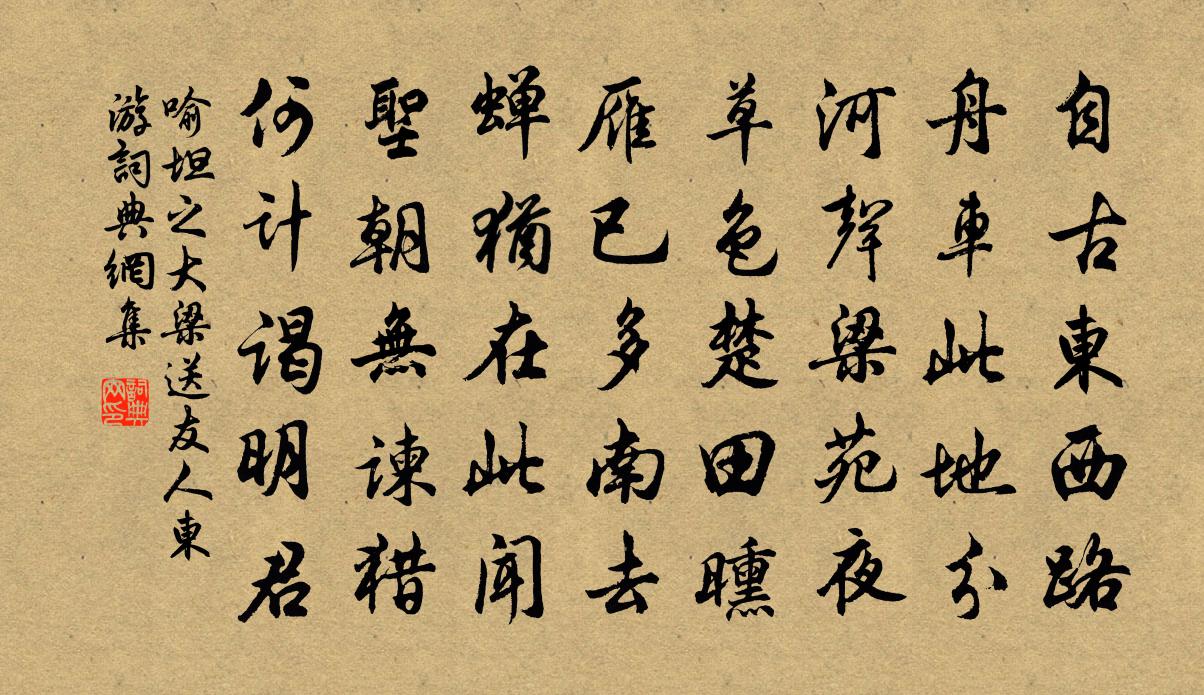 自古東西路
舟車此地分
河聲梁苑夜
草色楚田曛
雁已多南去
蝉猶在此聞
聖朝無諫猎
何计谒明君
喻坦之大梁送友人東
游詞典網集
詞典網印